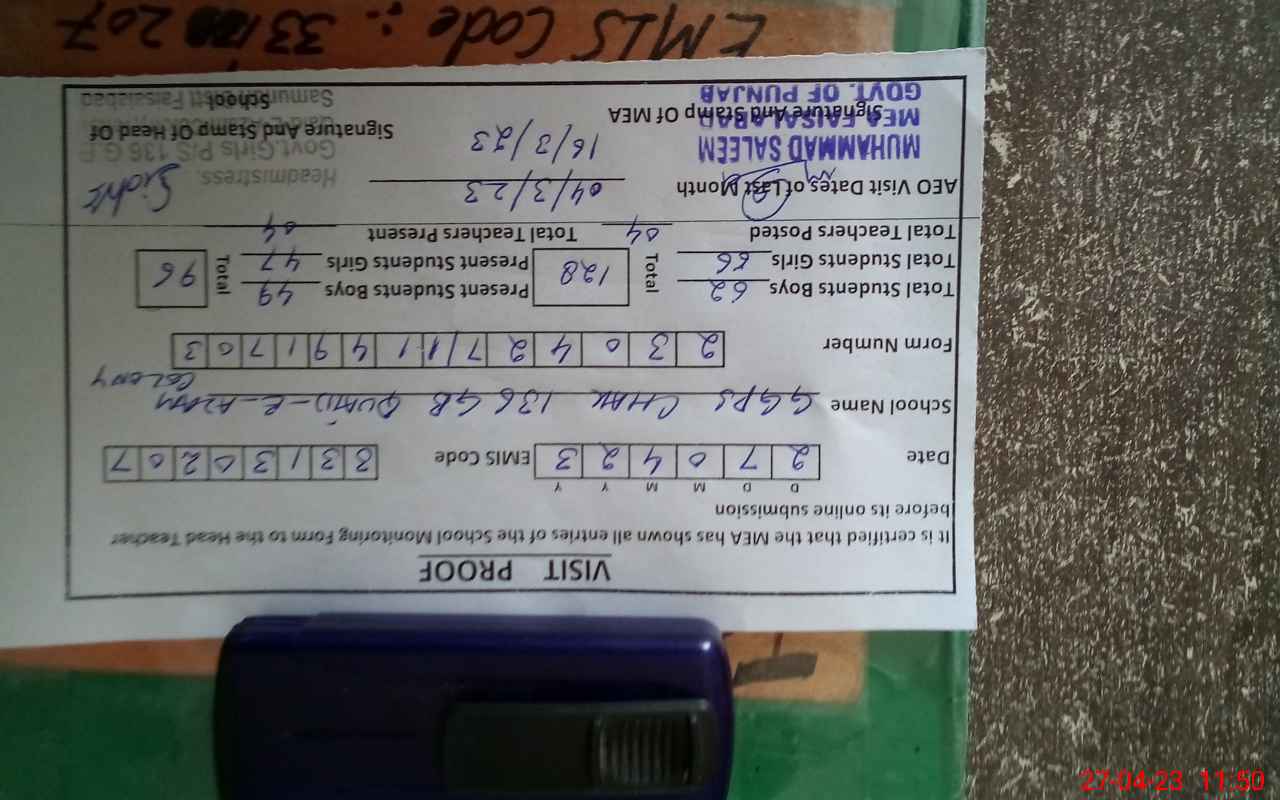 VISIT PROOF
It is certified that the MEA has shown all entries of the School Monitoring Form to the Head Teacher
before its online submission
D D M M Y Y
Date 2 7 0 4 2 3 EMIS Code 3 3 1 3 0 2 0 7
School Name GGPS CHAK 136 GB QUAID-E-AZAM
COLONY
Form Number 2 3 0 4 2 7 1 1 4 9 1 7 0 3
Total Students Boys 62 Total 128 Present Students Boys 49 Total 96
Total Students Girls 66 Present Students Girls 47
Total Teachers Posted 04 Total Teachers Present 04
AEO Visit Dates of Last Month 04/3/23
16/3/23
MUHAMMAD SALEEM
MEA FAISALABAD
GOVT. OF PUNJAB
Signature And Stamp Of MEA
Headmistress
Govt. Girls P/S 136 G.B
Samundri Distt Faisalabad
Signature And Stamp Of Head Of
School
EMIS Code :. 33 207
27-04-23 11:50